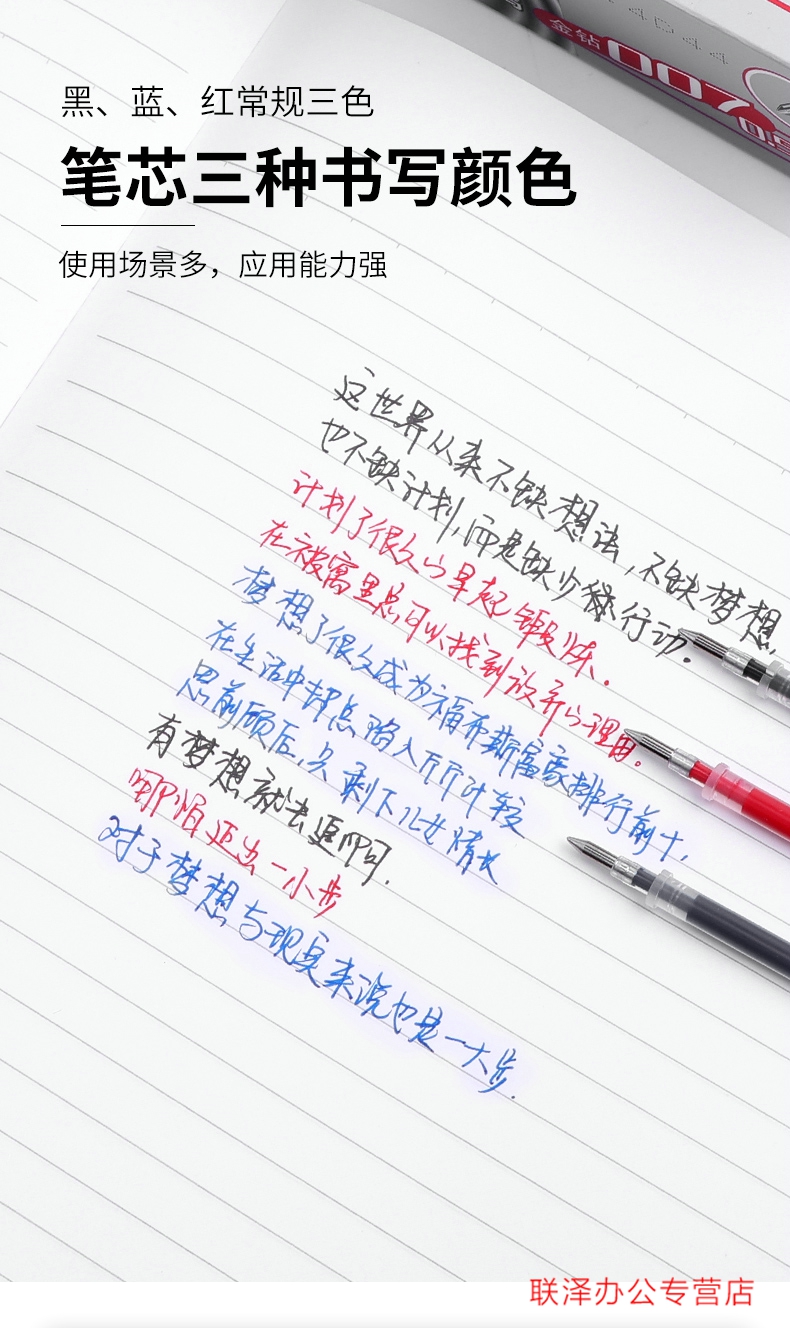 金钻
007
0.5
黑、蓝、红常规三色
笔芯三种书写颜色
使用场景多，应用能力强
这世界从来不缺想法，不缺梦想，
也不缺计划，而是缺少的行动。
计划了很久的早起锻炼。
在被窝里总可以找到放弃的理由。
梦想了很久成为福布斯富豪排行前十，
在生活中却总陷入斤斤计较
思前顾后，只剩下儿女情长
有梦想就去追啊可.
哪怕迈出一小步
对于梦想与现实来说也是一大步.
联泽办公专营店